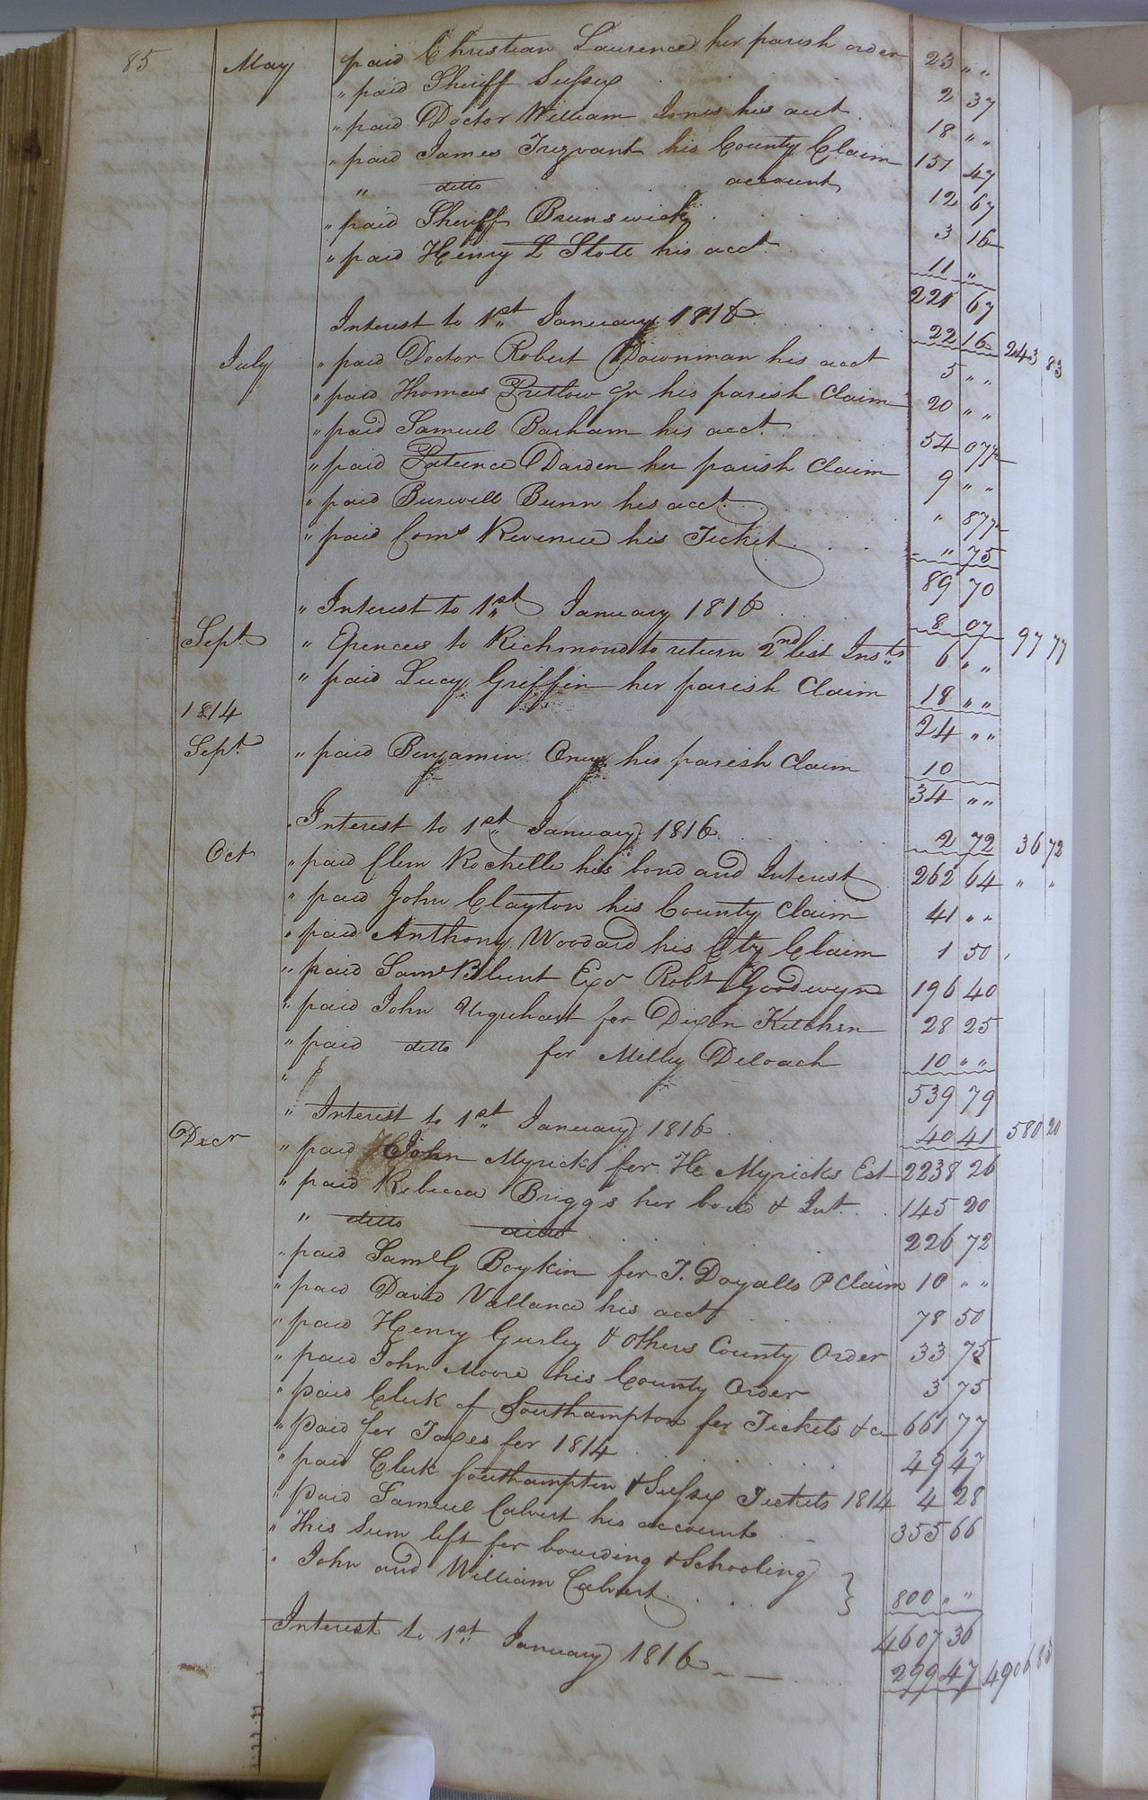 85 May paid Christian Laurence her parish order 23 " "
" paid Sheriff Sussex 2 37
" paid Doctor William Jones his acct. 18 " "
" paid James Trezvant his County Claim 151 47
" ditto account 12 67
" paid Sheriff Brunswick 3 16
" paid Henry L Stott his acct. 11 "
221 67
Interest to 1st January 1816 22 16 243 83
July " paid Doctor Robert Downman his acct 5 " "
" paid Thomas Pretlow Jr his parish Claim 20 " "
" paid Samuel Barham his acct. 54 07½
" paid Patience Darden her parish Claim 9 " "
" paid Burwell Bunn his acct. " 87½
" paid Coms Revenue his Ticket " 75
89 70
" Interest to 1st January 1816 8 07 97 77
Sept. " Epences to Richmond to return 2nd list Insts 6 " "
" paid Lucy Griffin her parish Claim 18 " "
1814 24 " "
Sept. " paid Benjamin Oney his parish Claim 10
34 " "
Interest to 1st January 1816 2 72 36 72
Oct " paid Clem Rochelle his bond and Interest 262 64 " "
" paid John Clayton his County Claim 41 " "
" paid Anthony Woodard his Cty Claim 1 50
" paid Saml Blunt Exr Robt Goodwyn 196 40
" paid John Urquhart for Dixon Kitchen 28 25
" paid ditto for Milly Deloach 10 " "
"
539 79
" Interest to 1st January 1816 40 41 580 20
Decr " paid John Myrick for He Myricks Est 2238 26
" paid Rebecca Briggs her bond & Int. 145 20
" ditto ditto 226 72
" paid Saml G Boykin for T. Doyalls P Claim 10 " "
" paid David Vallance his acct 78 50
" paid Henry Gurley & others County Order 33 75
" paid John Moore his County Order 3 75
" paid Clerk of Southampton for Tickets &c 661 77
" paid for Taxes for 1814 49 47
" paid Clerk Southampton & Sussex Tickets 1814 4 28
" paid Samuel Calvert his account 355 66
" This Sum left for boarding & Schooling
" John and William Calvert } 800 " "
4607 36
Interest to 1st January 1816 299 47 4906 83